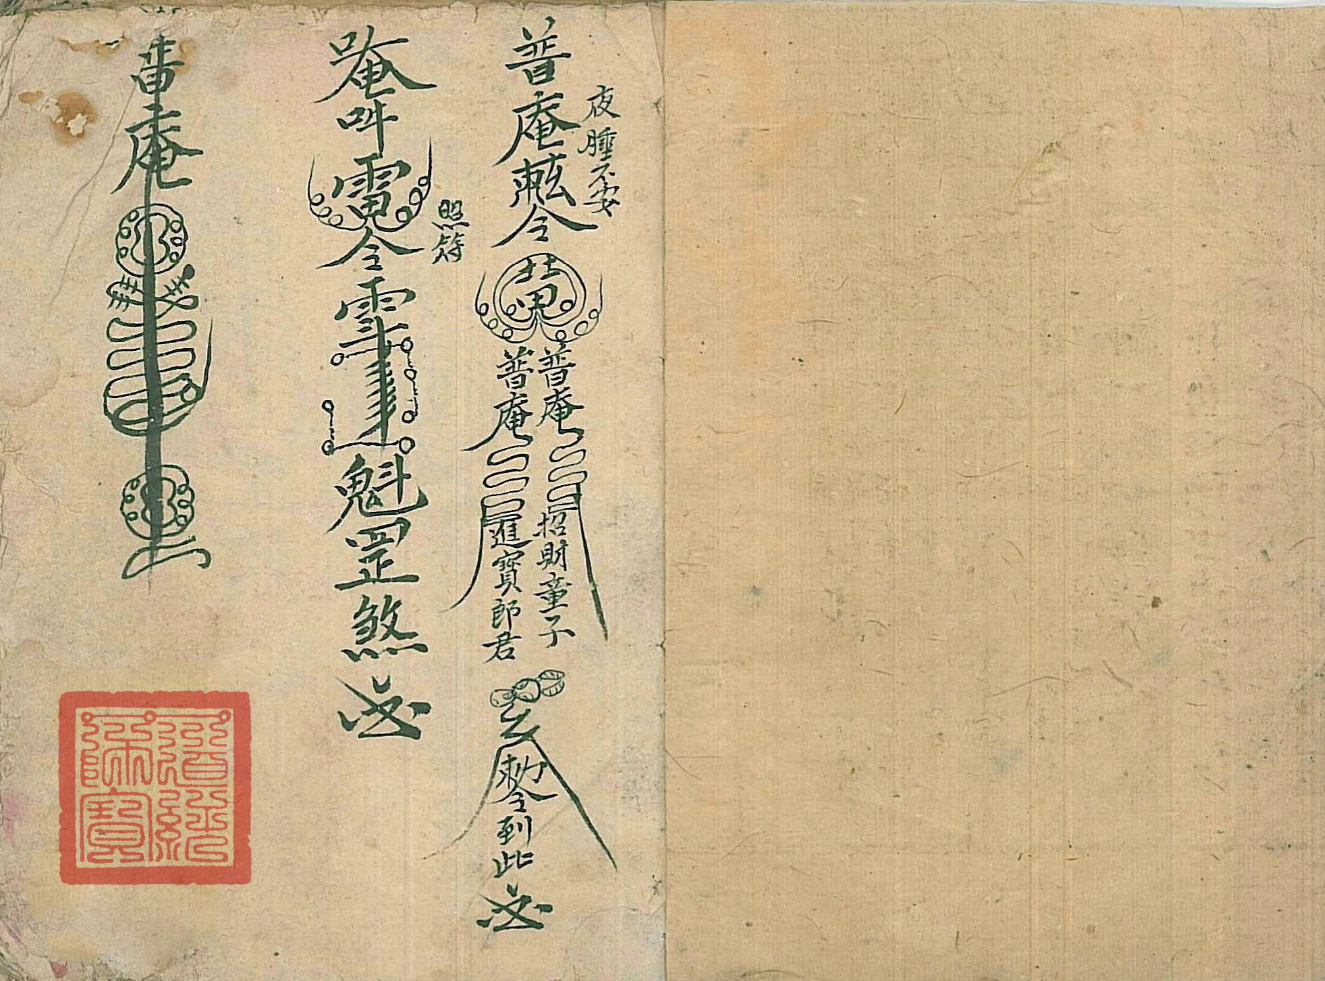 夜睡不安
普庵敕令
普庵
普庵
招財童子
進寶郎君
敕令到此
照符
唵吽
令
魁罡煞
普庵
道經師寶